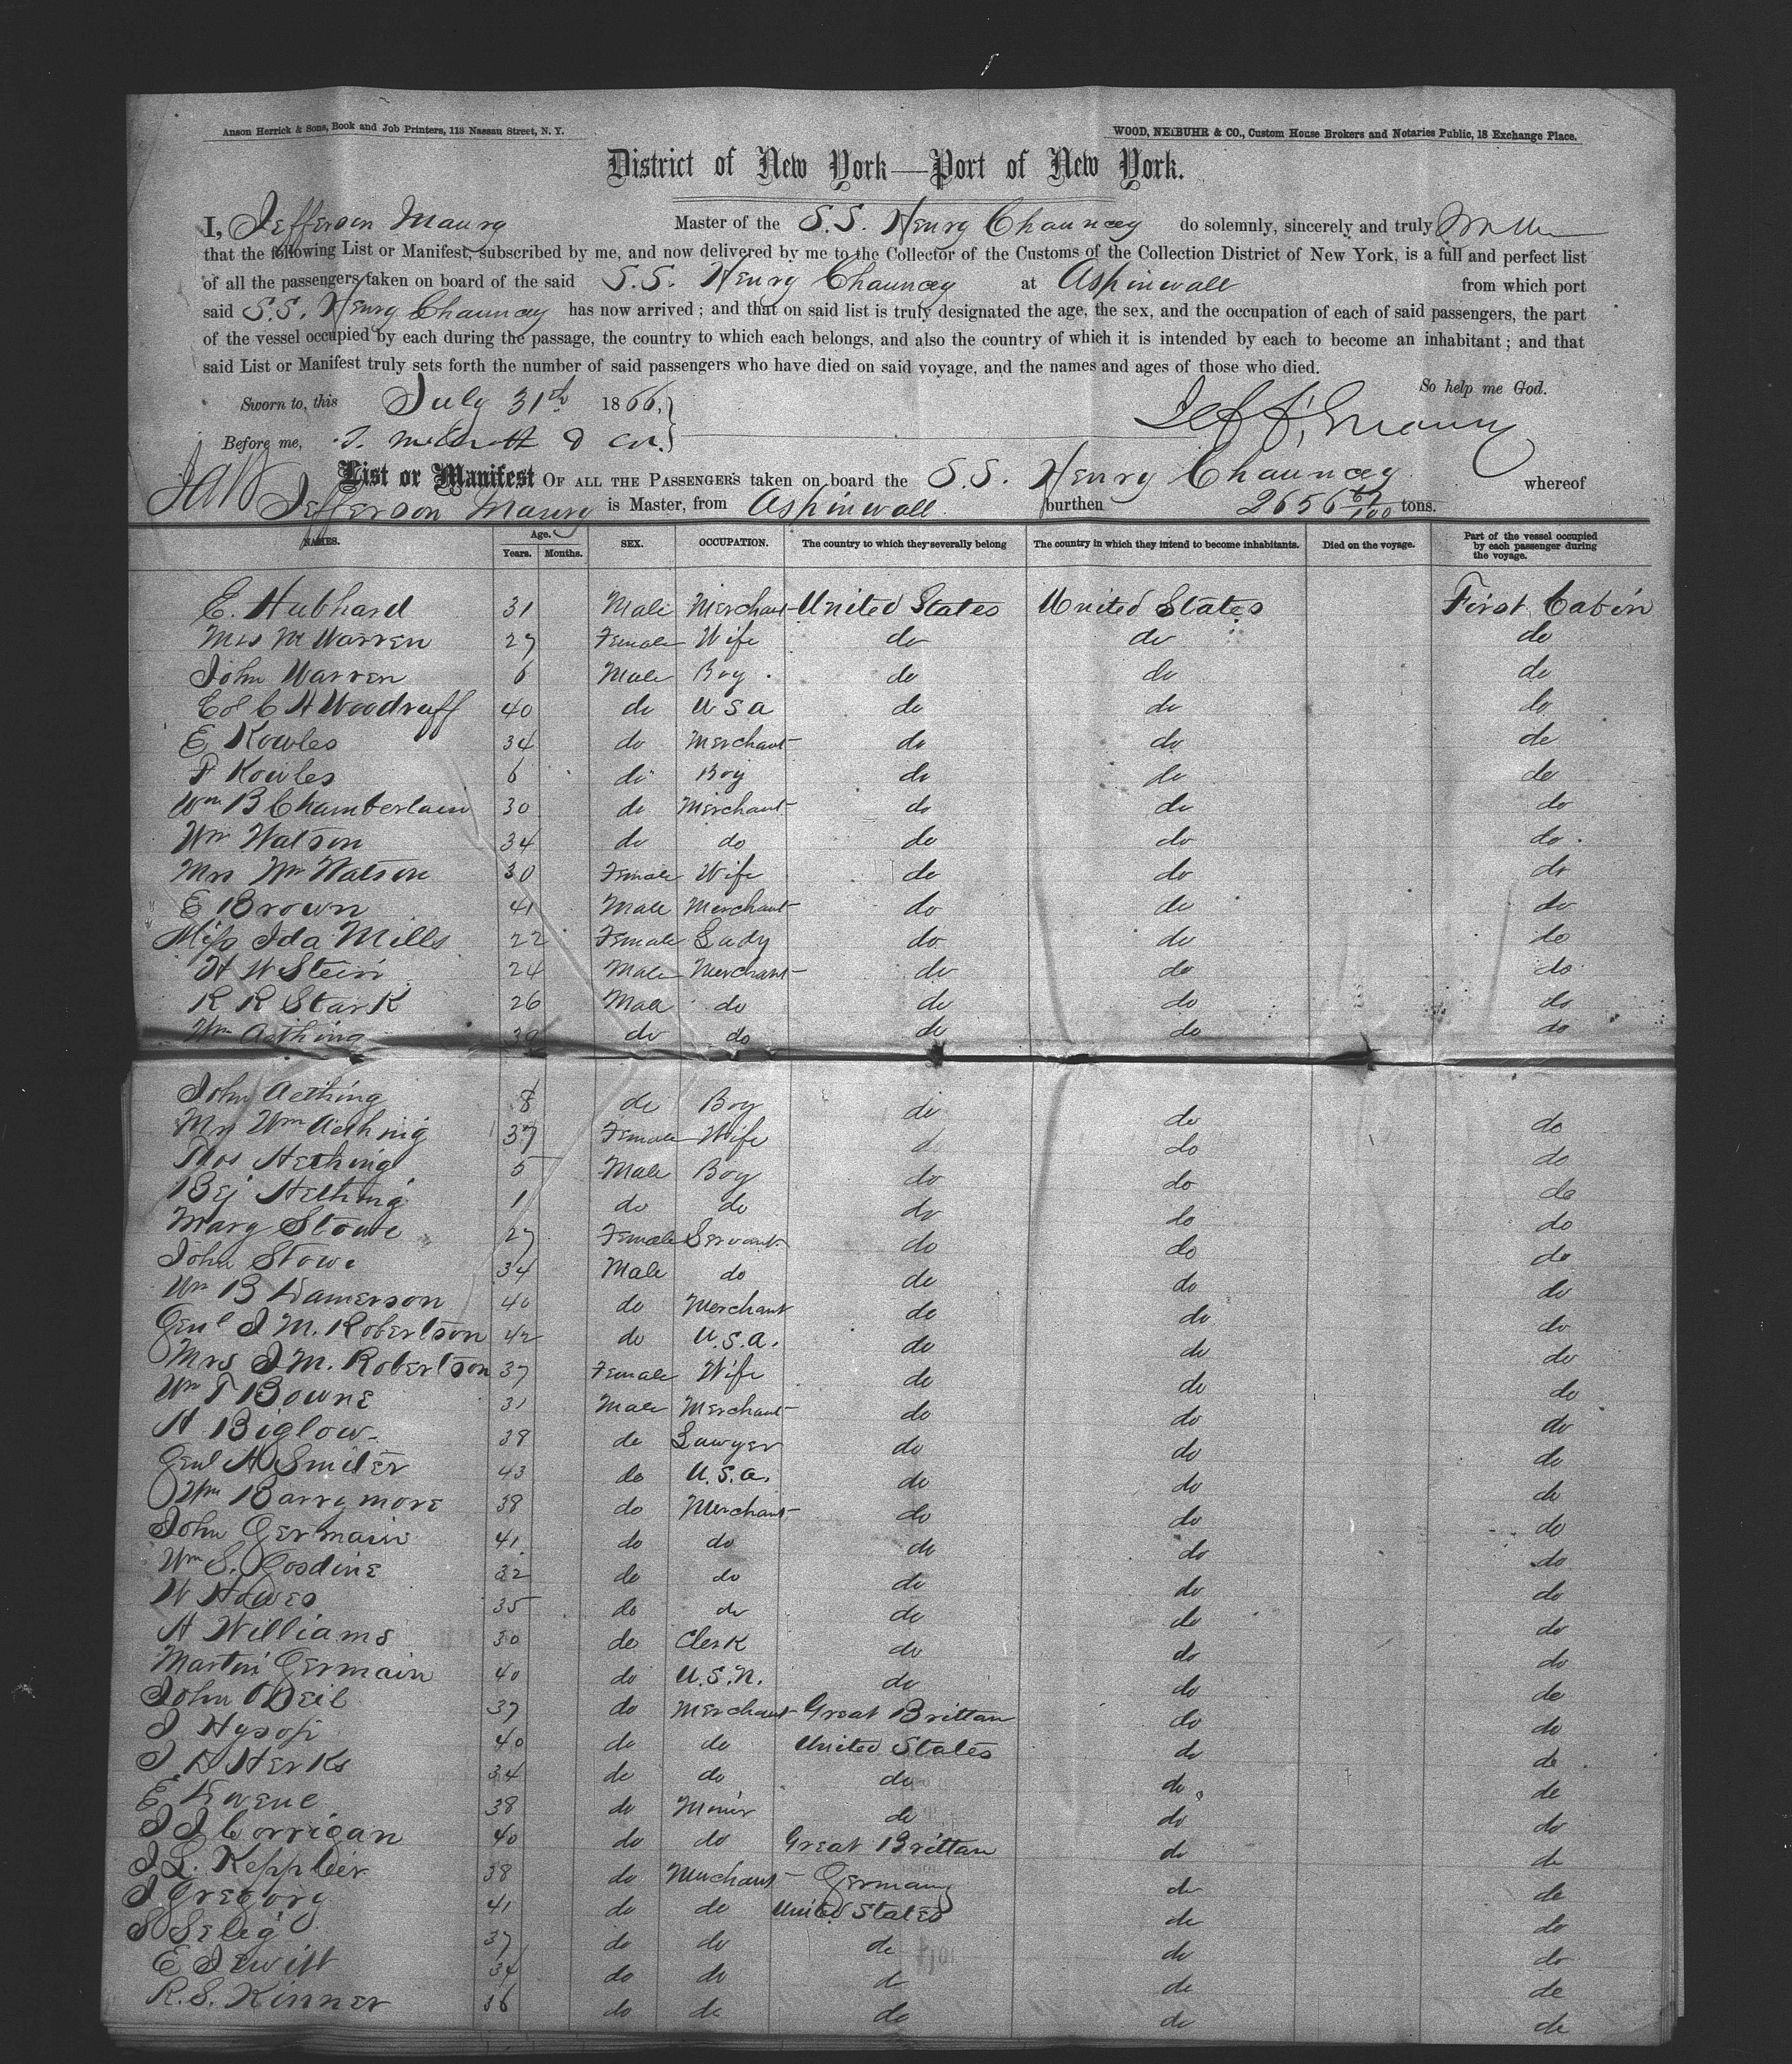 Anson Herrick & Sons, Book and Job Printers, 113 Nassau Street, N. Y.
WOOD, NEIBUHR & CO., Custom House Brokers and Notaries Public, 18 Exchange Place.
District of New York—Port of New York.
I, Jefferson Maury Master of the S.S. Henry Chauncey do solemnly, sincerely and truly
that the following List or Manifest, subscribed by me, and now delivered by me to the Collector of the Customs of the Collection District of New York, is a full and perfect list
of all the passengers taken on board of the said S.S. Henry Chauncey at Aspinwall from which port
said S.S. Henry Chauncey has now arrived; and that on said list is truly designated the age, the sex, and the occupation of each of said passengers, the part
of the vessel occupied by each during the passage, the country to which each belongs, and also the country of which it is intended by each to become an inhabitant; and that
said List or Manifest truly sets forth the number of said passengers who have died on said voyage, and the names and ages of those who died.
So help me God.
Sworn to, this July 31th 1866, Jeff. Maury
Before me,
List or Manifest OF ALL THE PASSENGERS taken on board the S.S. Henry Chauncey whereof
Jefferson Maury is Master, from Aspinwall burthen 2656 67/100 tons.
NAMES. Age. Years. Months. SEX. OCCUPATION. The country to which they severally belong The country in which they intend to become inhabitants. Died on the voyage. Part of the vessel occupied by each passenger during the voyage.
E. Hubbard 31 Male Merchant United States United States First Cabin
Mrs M Warren 27 Female Wife do do do
John Warren 6 Male Boy do do do
Col C H Woodruff 40 do USA do do do
E Kowles 34 do Merchant do do do
F Kowles 6 do Boy do do do
Wm B Chamberlain 30 do Merchant do do do
Wm Watson 34 do do do do do
Mrs Wm Watson 30 Female Wife do do do
E Brown 41 Male Merchant do do do
Miss Ida Mills 22 Female Lady do do do
H W Stein 24 Male Merchant do do do
R R Stark 26 Male do do do do
Wm Aething 39 do do do do do
John Aething 8 do Boy do do do
Mrs Wm Aething 37 Female Wife do do do
Thos Aething 5 Male Boy do do do
Bej Aething 1 do do do do do
Mary Stowe 27 Female Servant do do do
John Stowe 34 Male do do do do
Wm B Damerson 40 do Merchant do do do
Genl J M. Robertson 42 do U.S.A. do do do
Mrs J M. Robertson 37 Female Wife do do do
Wm T Bowne 31 Male Merchant do do do
H Biglow 38 do Lawyer do do do
Genl A Smiler 43 do U.S.A. do do do
Wm Barrymore 38 do Merchant do do do
John Germain 41 do do do do do
Wm S. Gosdine 32 do do do do do
W Hawes 35 do do do do do
H Williams 30 do Clerk do do do
Martin Germain 40 do U.S.N. do do do
John O'Deil 37 do Merchant Great Brittan do do
J Hysop 40 do do United States do do
J D Herks 34 do do do do do
E 38 do Minor do do do
J J Corrigan 40 do do Great Brittan do do
J L. Kepplier 38 do Merchant Germany do do
J Gregory 41 do do United States do do
S Selig 37 do do do do do
E Jewitt 34 do do do do do
R.S. Kinner 36 do do do do do